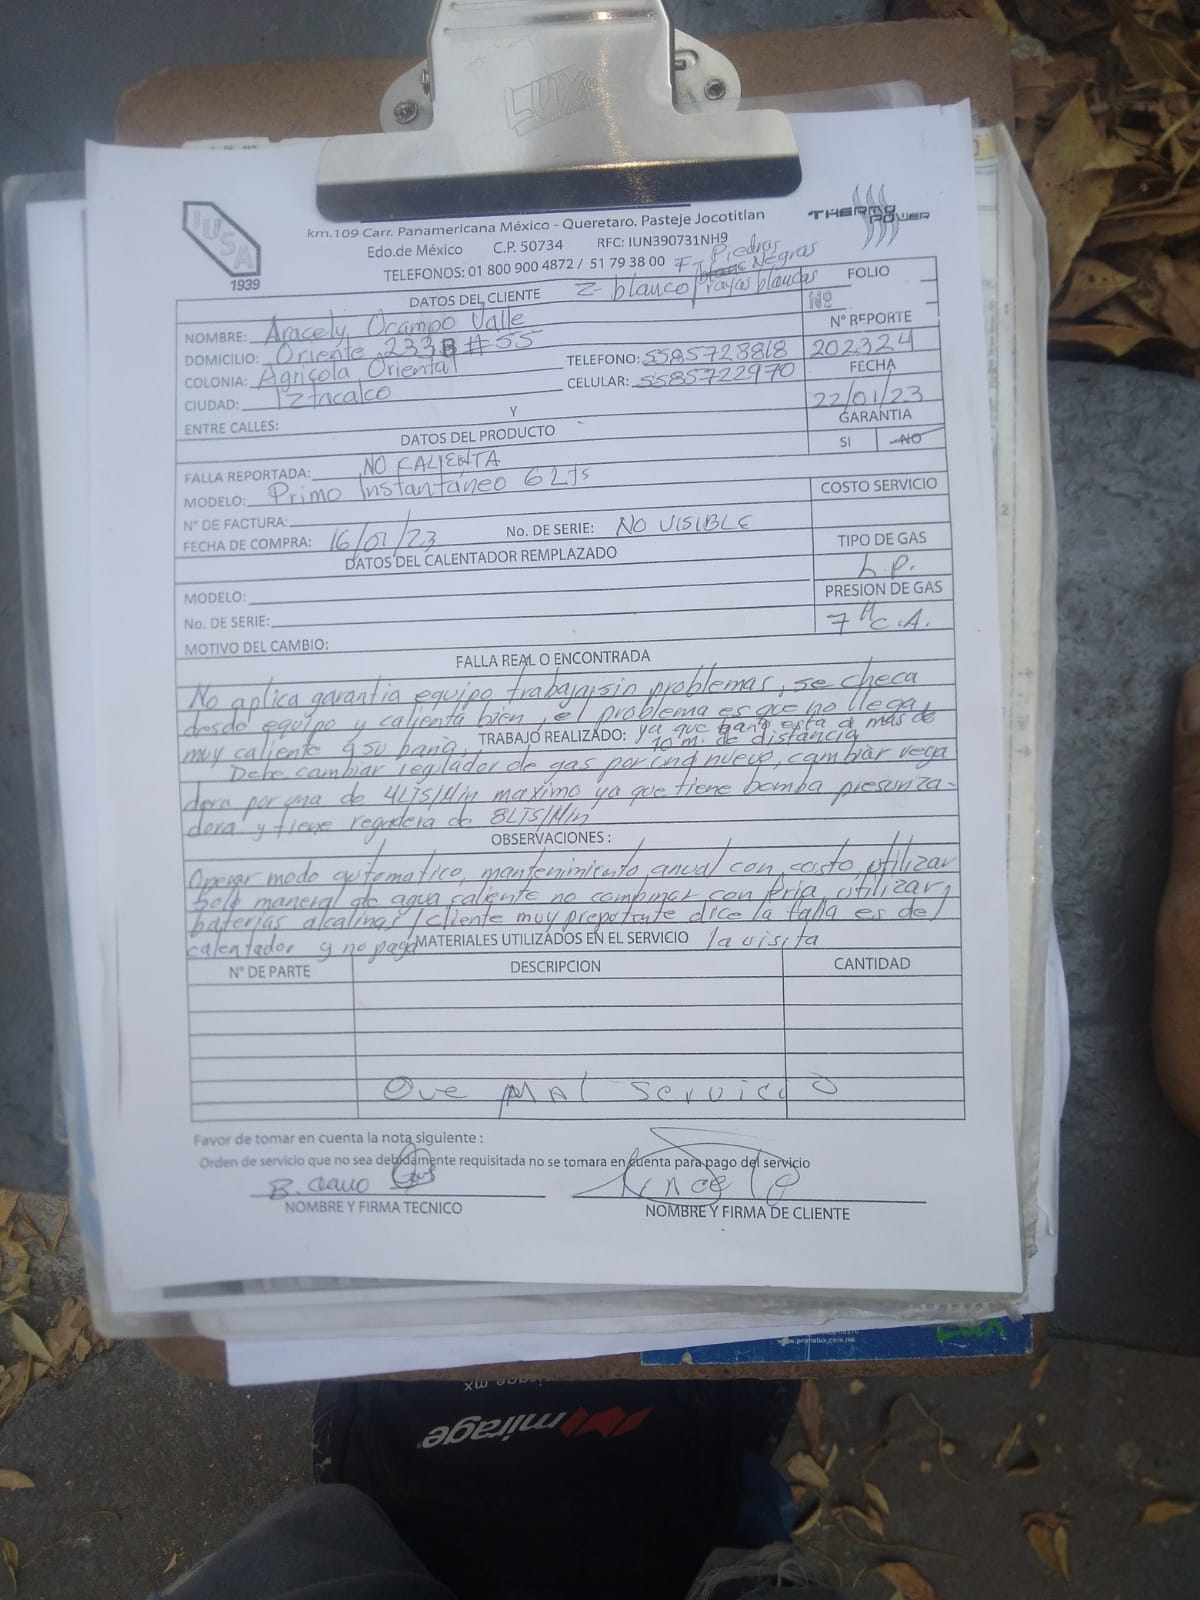 LUX
IUSA
1939
THERMO POWER
km.109 Carr. Panamericana México - Queretaro. Pasteje Jocotitlan
Edo.de México C.P. 50734 RFC: IUN390731NH9
TELEFONOS: 01 800 900 4872 / 51 79 38 00 F- Piedras Negras
DATOS DEL CLIENTE Z- blanco/rayas blancas
FOLIO
Nº
NOMBRE: Aracely Ocampo Valle
Nº REPORTE
DOMICILIO: Oriente 233B #55 TELEFONO: 5585728818 202324
COLONIA: Agricola Oriental CELULAR: 5585722970 FECHA
CIUDAD: Iztacalco 22/01/23
ENTRE CALLES: Y GARANTIA
DATOS DEL PRODUCTO SI NO
FALLA REPORTADA: NO CALIENTA
MODELO: Primo Instantáneo 6 Lts COSTO SERVICIO
N° DE FACTURA:
FECHA DE COMPRA: 16/01/23 No. DE SERIE: NO VISIBLE TIPO DE GAS
DATOS DEL CALENTADOR REMPLAZADO L.P.
MODELO: PRESION DE GAS
No. DE SERIE: 7" C.A.
MOTIVO DEL CAMBIO:
FALLA REAL O ENCONTRADA
No aplica garantia equipo trabaja sin problemas, se checa
desde equipo y calienta bien, el problema es que no llega
muy caliente a su baño, ya que baño esta a más de
10 m. de distancia
TRABAJO REALIZADO:
Debe cambiar regulador de gas por uno nuevo, cambiar rega
dera por una de 4LTS/Min maximo ya que tiene bomba presuriza-
dora y tiene regadera de 8LTS/Min
OBSERVACIONES :
Operar modo automatico, mantenimiento anual con costo, utilizar
solo maneral de agua caliente no combinar con fria, utilizar
baterias alcalinas / cliente muy prepotente dice la falla es del
calentador y no paga la visita
MATERIALES UTILIZADOS EN EL SERVICIO
N° DE PARTE DESCRIPCION CANTIDAD
Que MAL Servicio
Favor de tomar en cuenta la nota siguiente :
Orden de servicio que no sea debidamente requisitada no se tomara en cuenta para pago del servicio
NOMBRE Y FIRMA TECNICO NOMBRE Y FIRMA DE CLIENTE
www.pronalux.com.mx
LUX
mirage